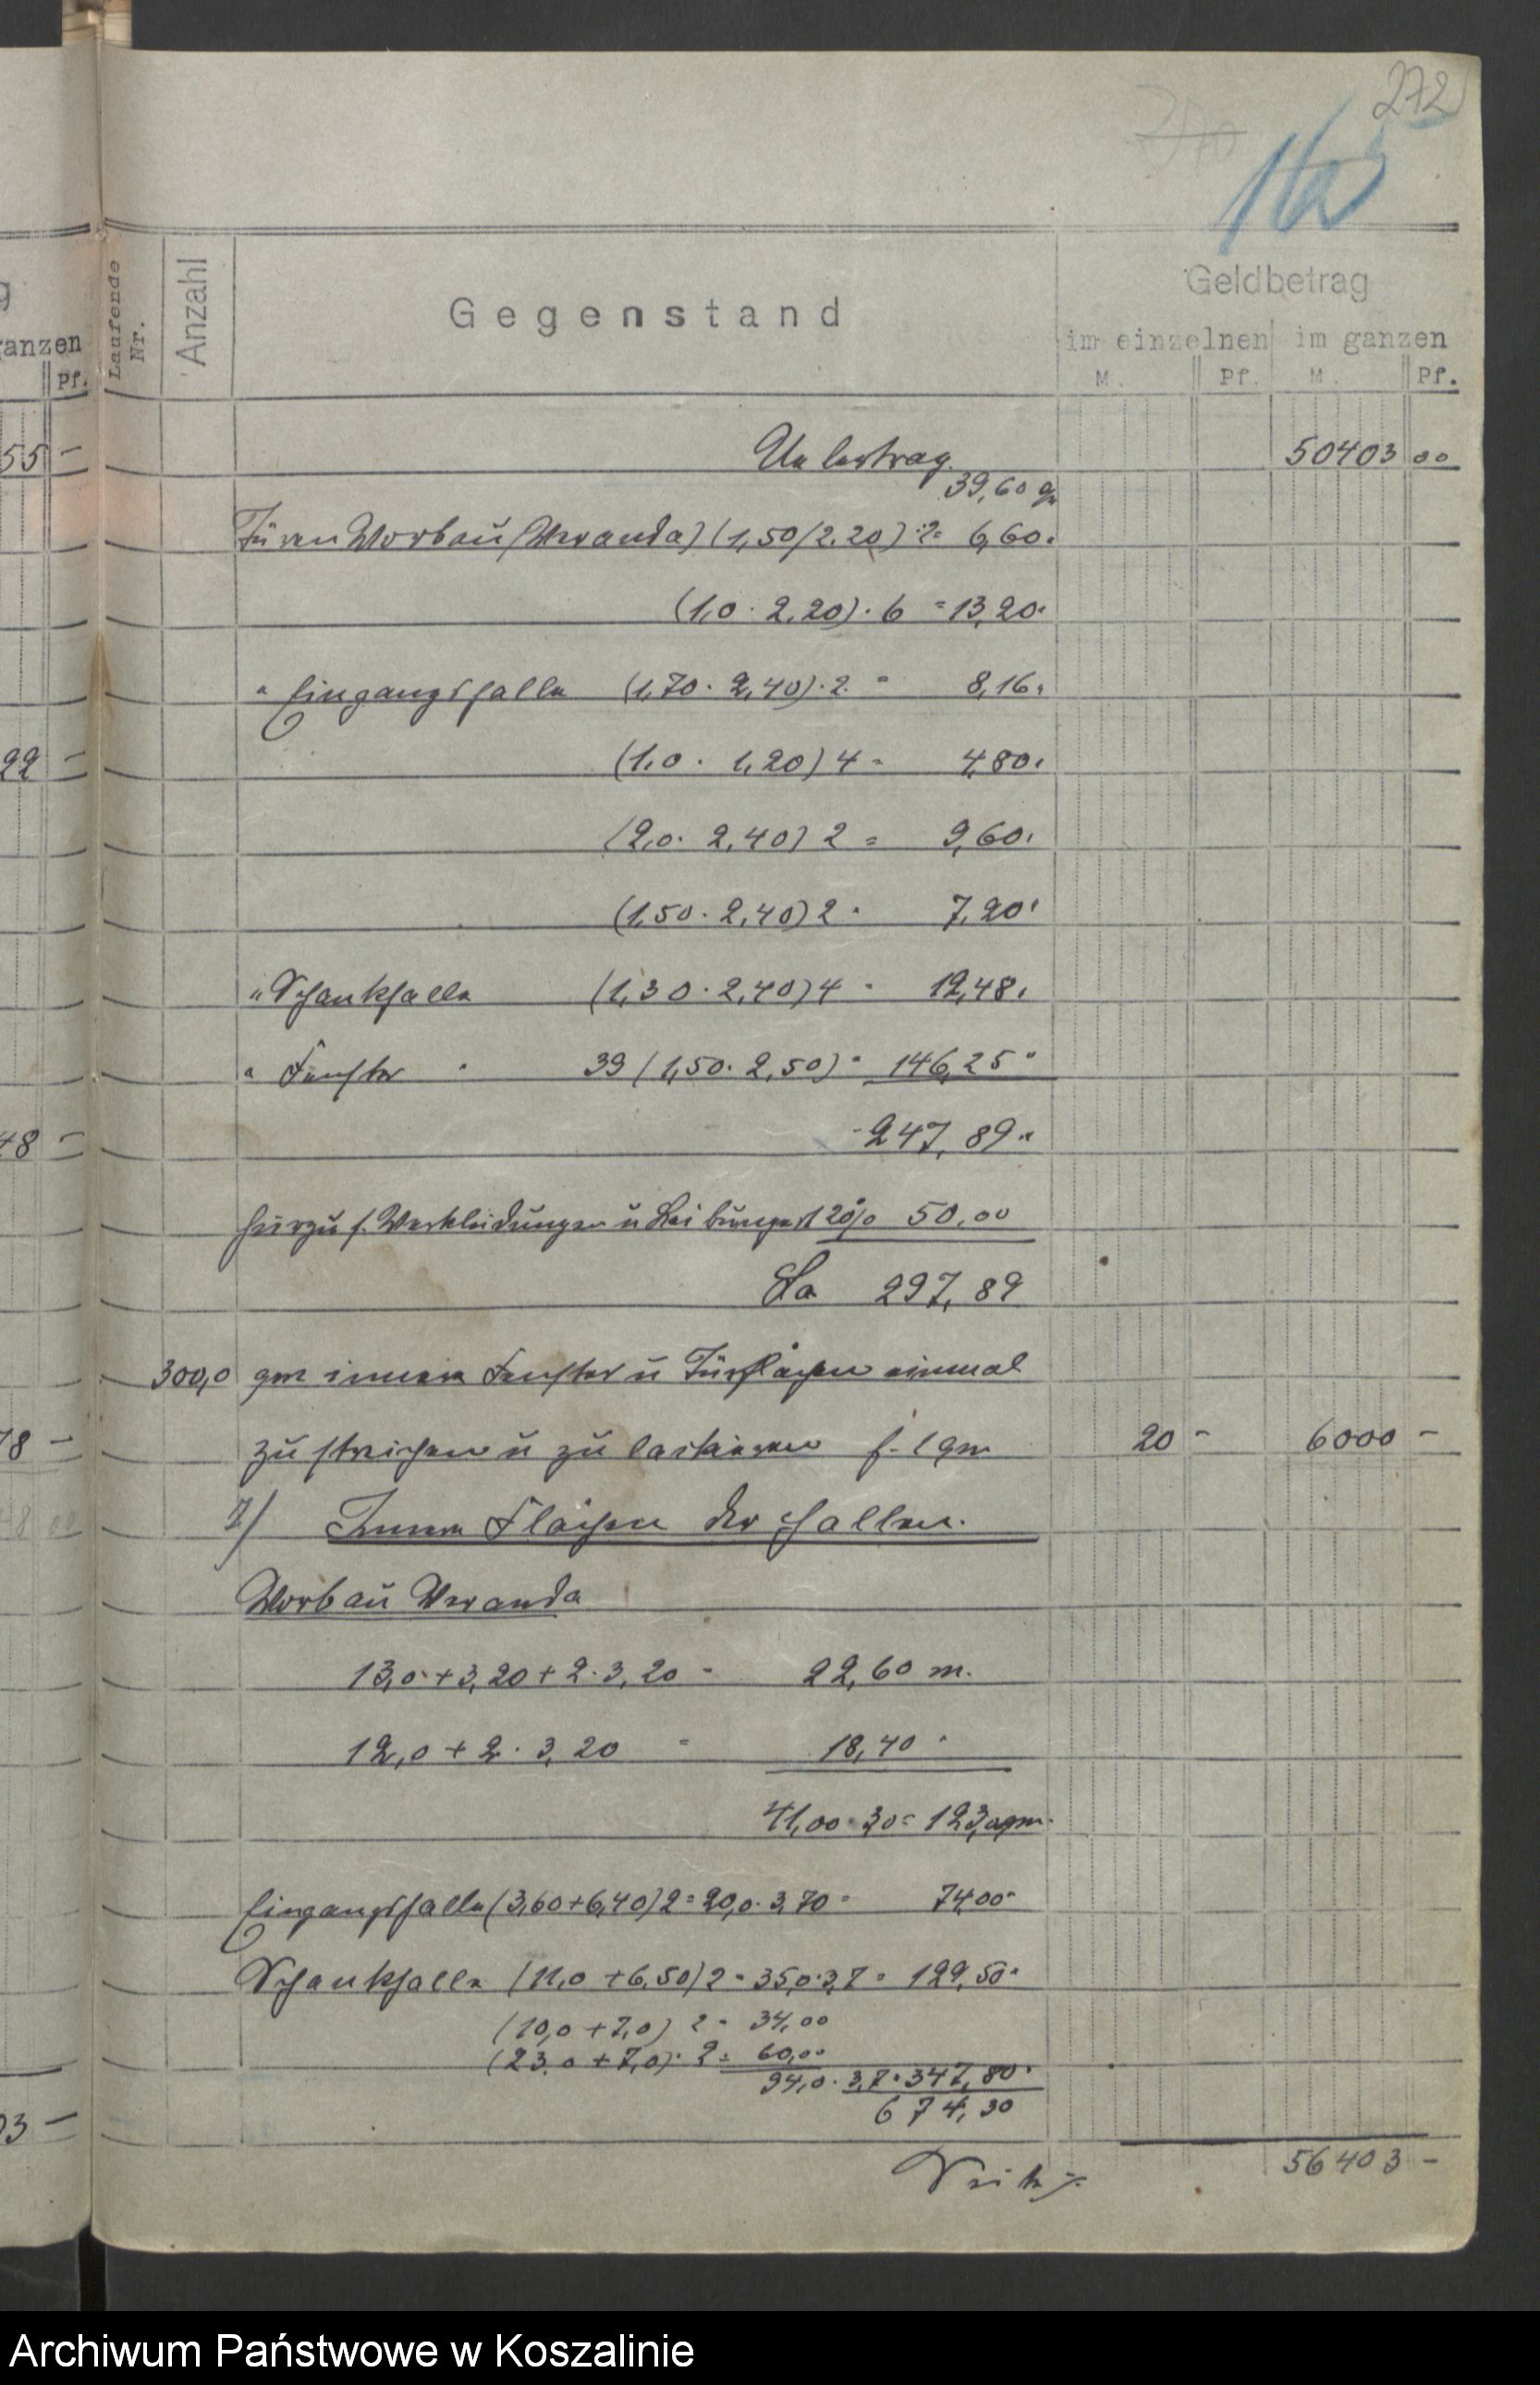 272
270
16a
g
ganzen
Pf.
Laufende Nr.
Anzahl
Gegenstand
Geldbetrag
im einzelnen
im ganzen
M.
Pf.
M.
Pf.
55 -
Uebertrag
50403 00
39,60 qm
Türen Vorbau (Veranda) (1,50/2.20) · 2 = 6,60 "
(1,0 · 2,20) · 6 = 13,20 "
" Eingangshalle (1,70 · 2,40) · 2 = 8,16 "
22 -
(1,0 · 1,20) 4 = 4,80 "
(2,0 · 2,40) 2 = 9,60 "
(1,50 · 2,40) 2 = 7,20 "
" Schankhalle (1,30 · 2,40) 4 = 12,48 "
" Fenster " 39 (1,50 · 2,50) = 146,25 "
48 -
247,89 "
hierzu f. Verkleidungen u Leibungen 20% 50,00
Sa 297,89
300,0 qm innere Fenster u Türflächen einmal
78 -
zu streichen u zu lackieren f. 1 qm 20 - 6000 -
48 00
7/ Innere Flächen der Hallen.
Vorbau Veranda
13,0 + 3,20 + 2 · 3,20 = 22,60 m.
12,0 + 2 · 3,20 = 18,40 "
41,00 · 3,0 = 123,0 qm.
Eingangshalle (3,60 + 6,40) 2 = 20,0 · 3,70 = 74,00 "
Schankhalle (11,0 + 6,50) 2 = 35,0 · 3,7 = 129,50 "
(10,0 + 7,0) 2 = 34,00
(23,0 + 7,0) · 2 = 60,00
94,0 · 3,7 = 347,80 "
674,30
03 -
Seite ./.
56403 -
Archiwum Państwowe w Koszalinie